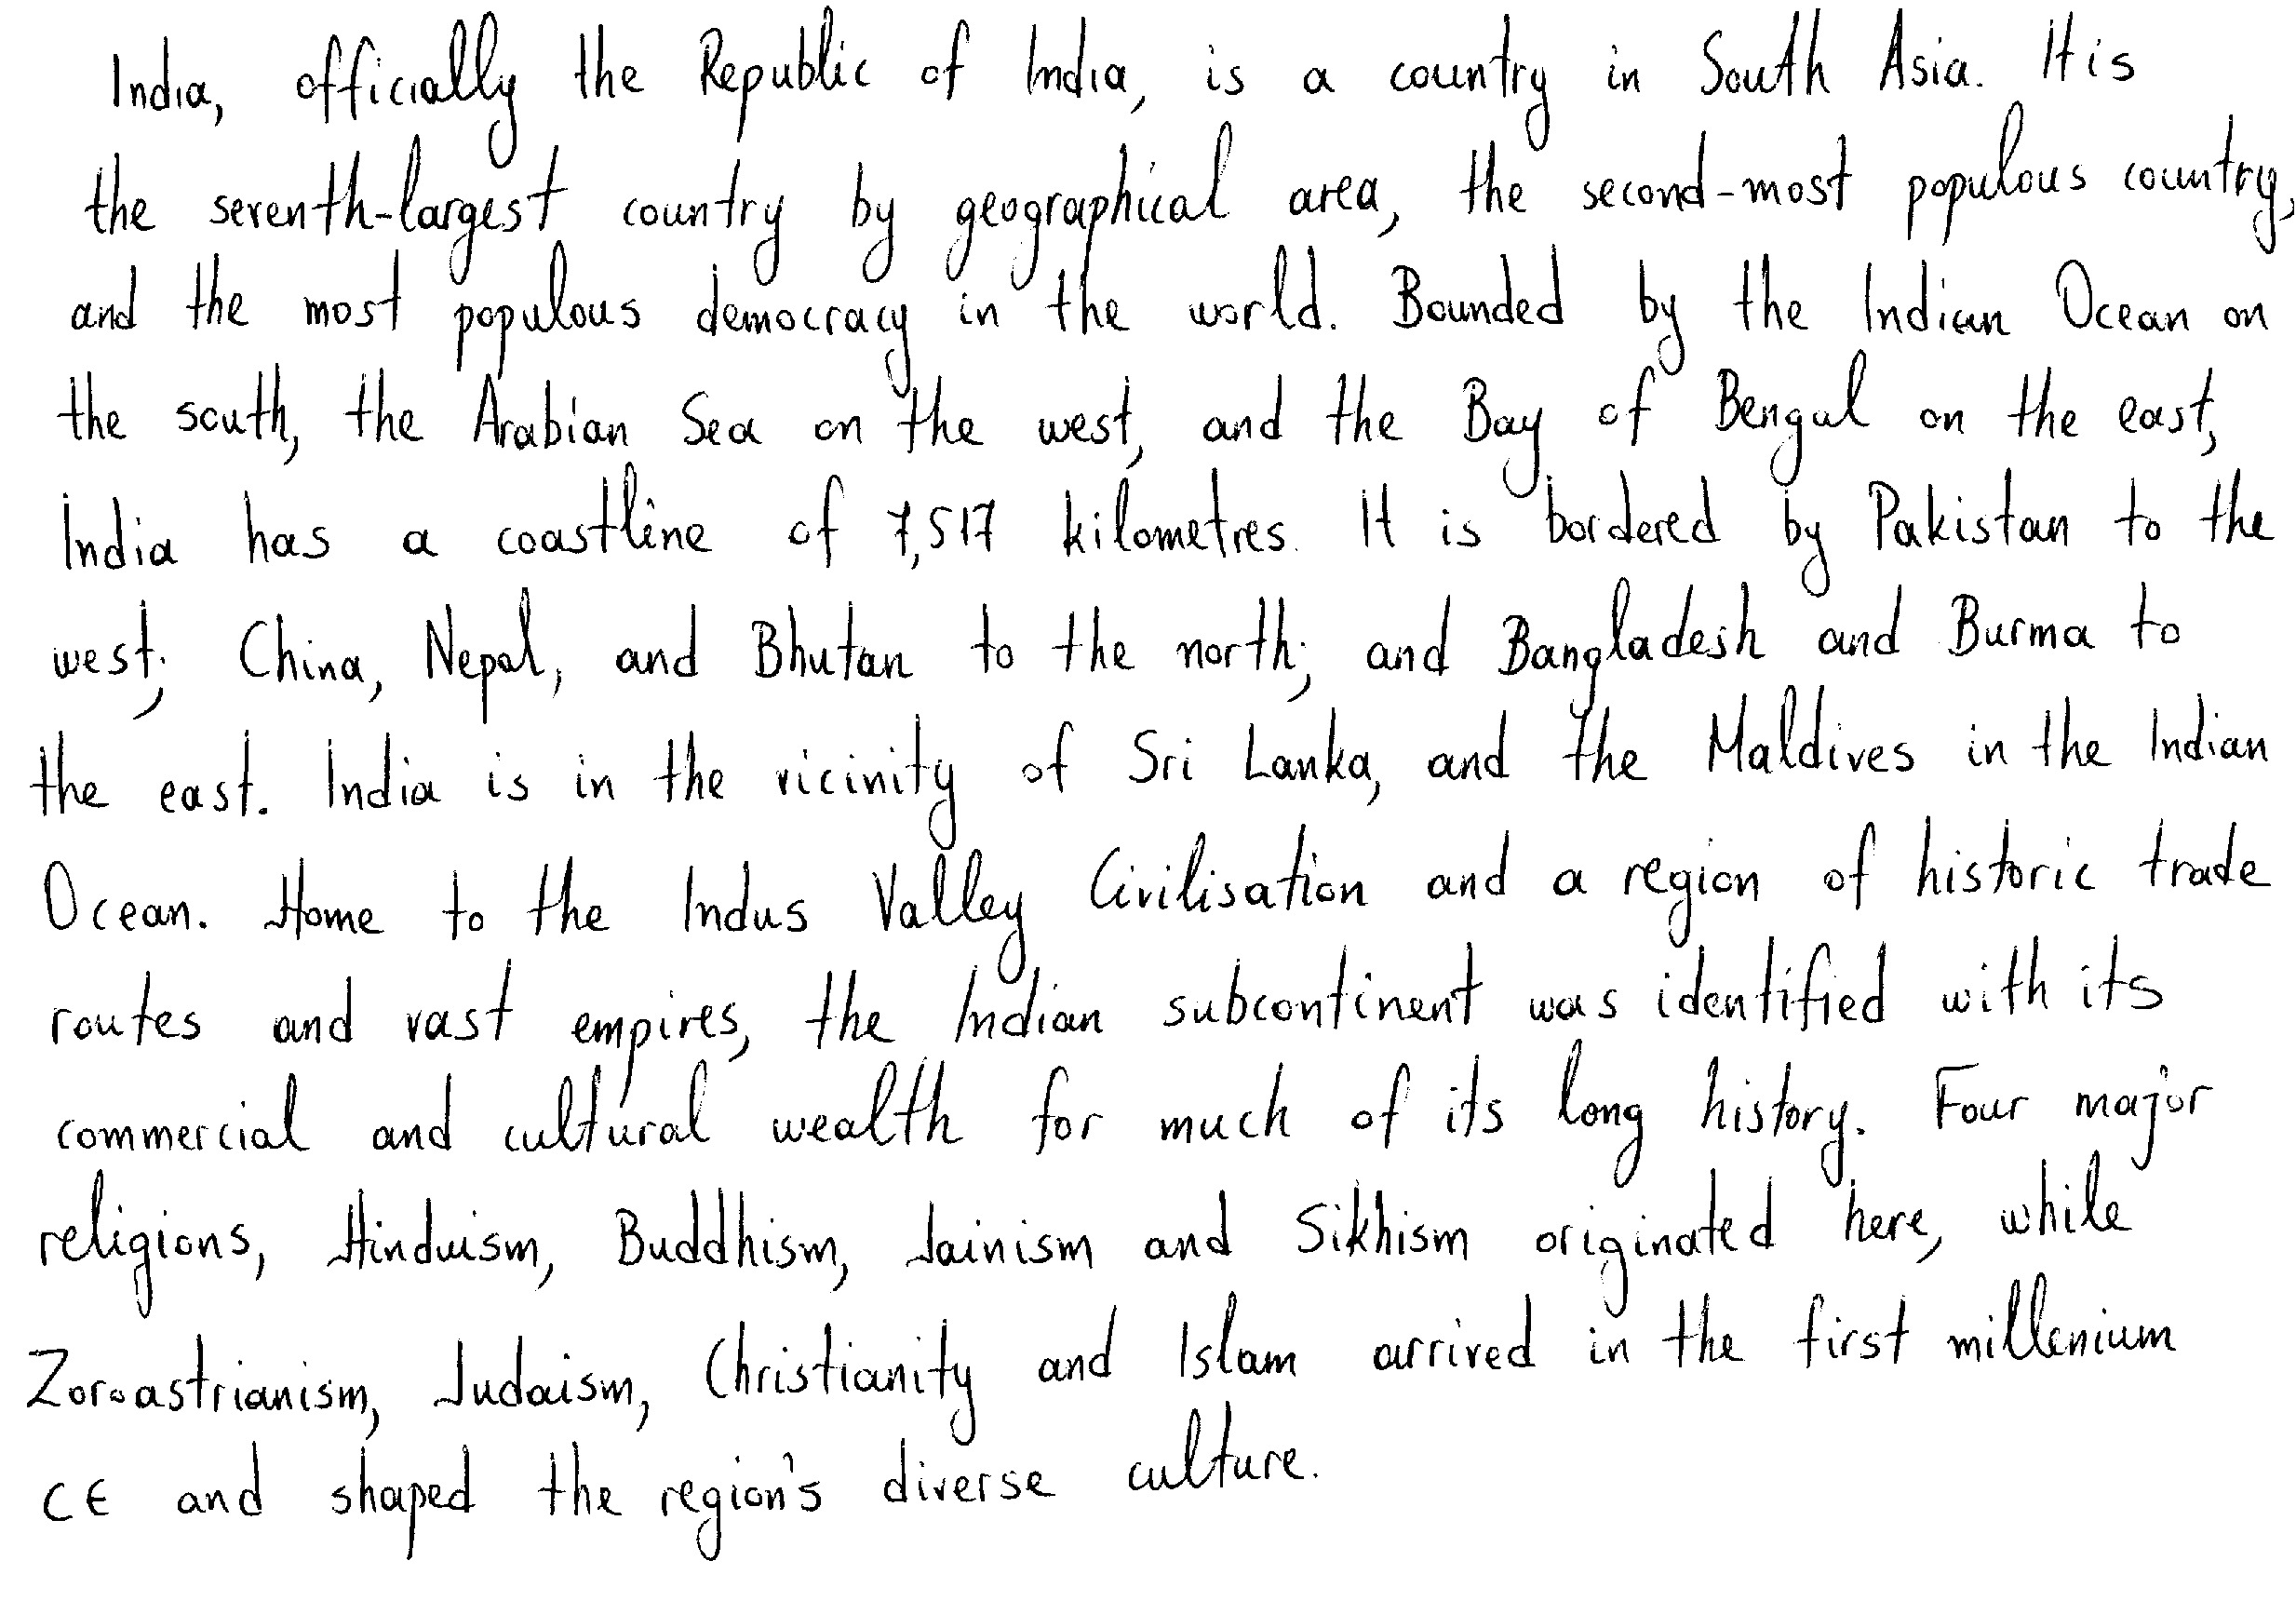 India, officially the Republic of India, is a country in South Asia. It is
the seventh-largest country by geographical area, the second-most populous country,
and the most populous democracy in the world. Bounded by the Indian Ocean on
the south, the Arabian Sea on the west, and the Bay of Bengal on the east,
India has a coastline of 7,517 kilometres. It is bordered by Pakistan to the
west; China, Nepal, and Bhutan to the north; and Bangladesh and Burma to
the east. India is in the vicinity of Sri Lanka, and the Maldives in the Indian
Ocean. Home to the Indus Valley Civilisation and a region of historic trade
routes and vast empires, the Indian subcontinent was identified with its
commercial and cultural wealth for much of its long history. Four major
religions, Hinduism, Buddhism, Jainism and Sikhism originated here, while
Zoroastrianism, Judaism, Christianity and Islam arrived in the first millenium
CE and shaped the region's diverse culture.